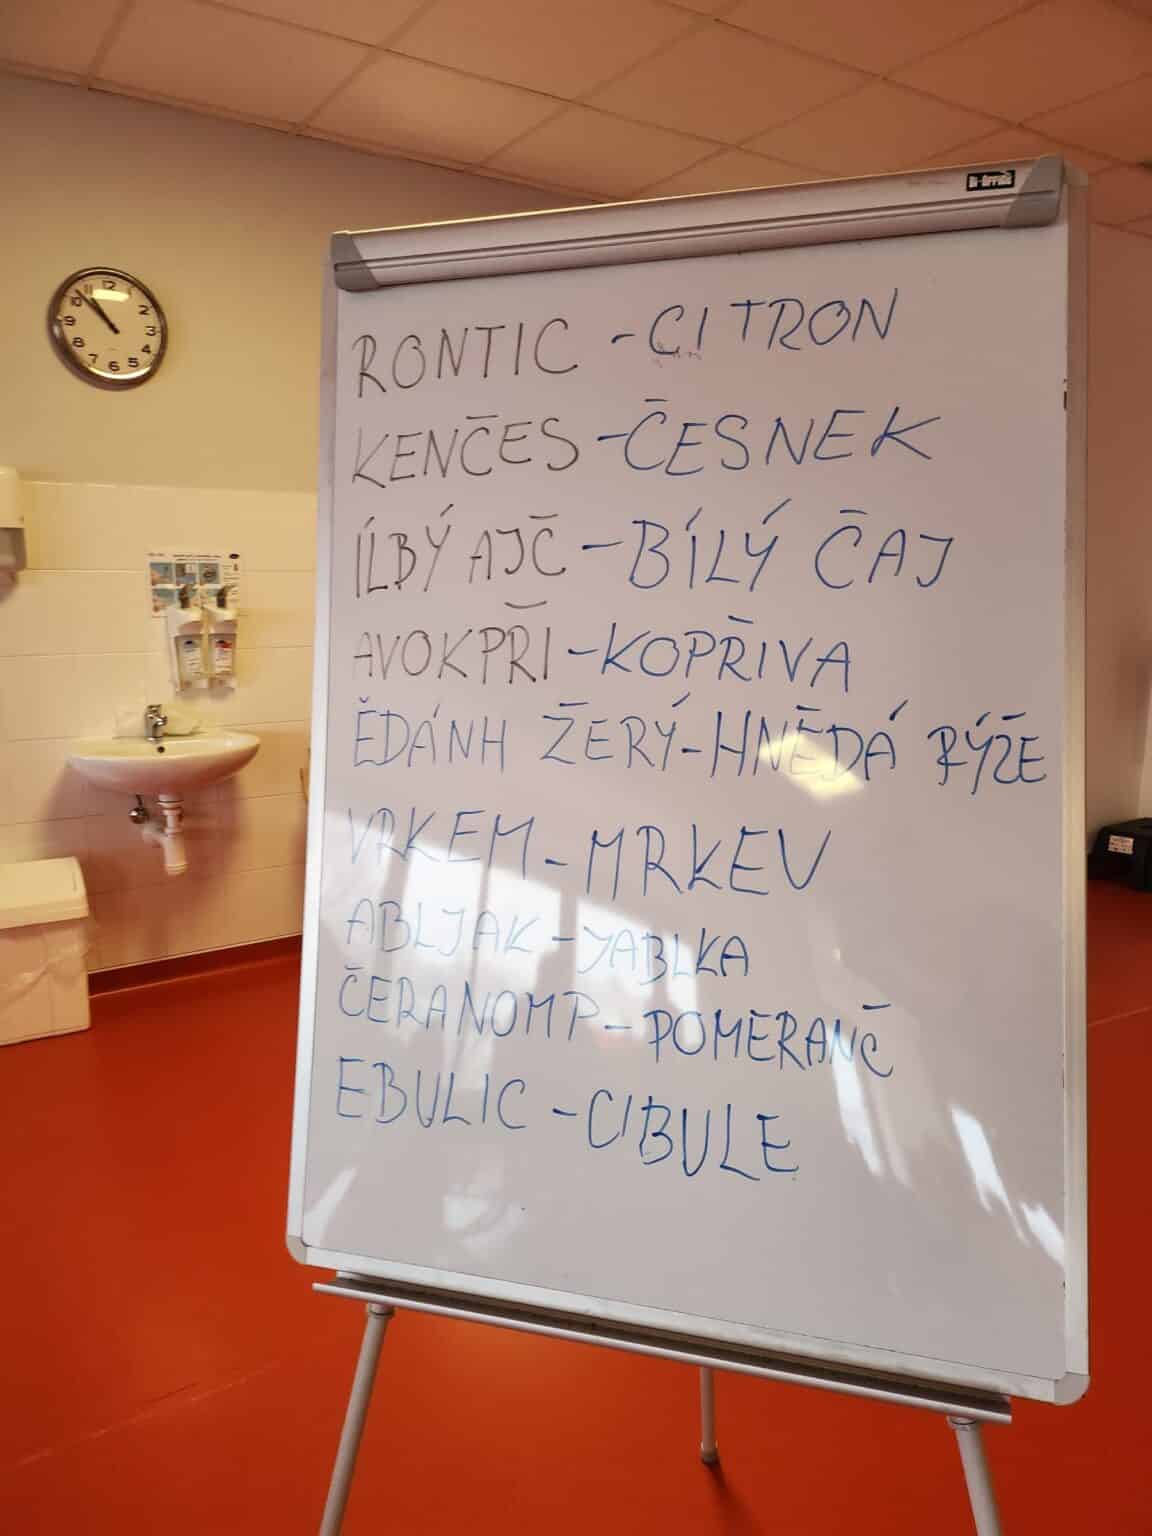 RONTIC - CITRON
KENČES - ČESNEK
ÍLBÝ AJČ - BÍLÝ ČAJ
AVOKPŘI - KOPŘIVA
ĚDÁNH ŽERÝ - HNĚDÁ RÝŽE
VRKEM - MRKEV
ABLJAK - JABLKA
ČERANOMP - POMERANČ
EBULIC - CIBULE
12
11
10
9
8
7
6
5
4
3
2